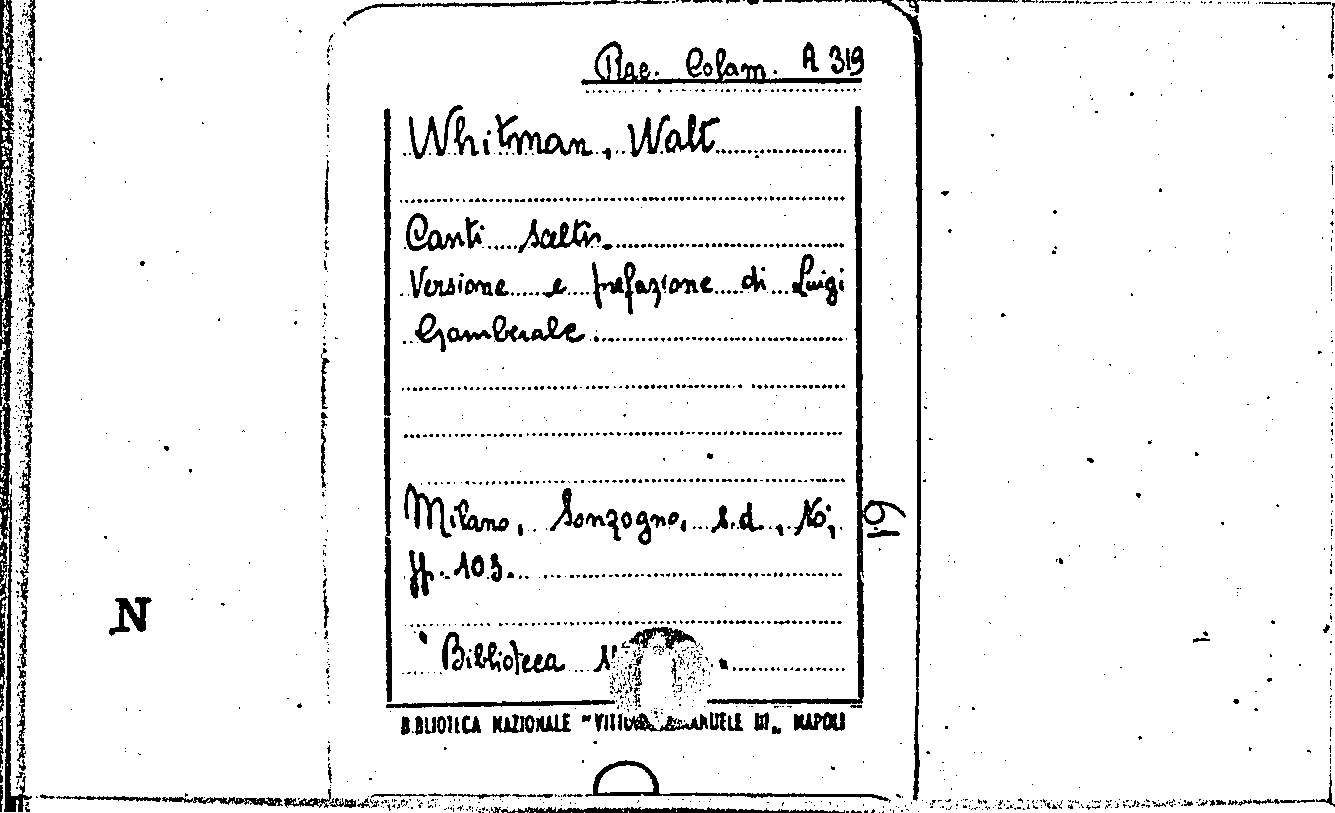 Rac. Colam. A 319
Whitman, Walt
Canti scelti.
Versione e prefazione di Luigi
Gamberale.
Milano, Sonzogno, s.d., 16°,
pp. 103.
61
N
"Biblioteca
BIBLIOTECA NAZIONALE "VITTORIO EMANUELE III„ NAPOLI